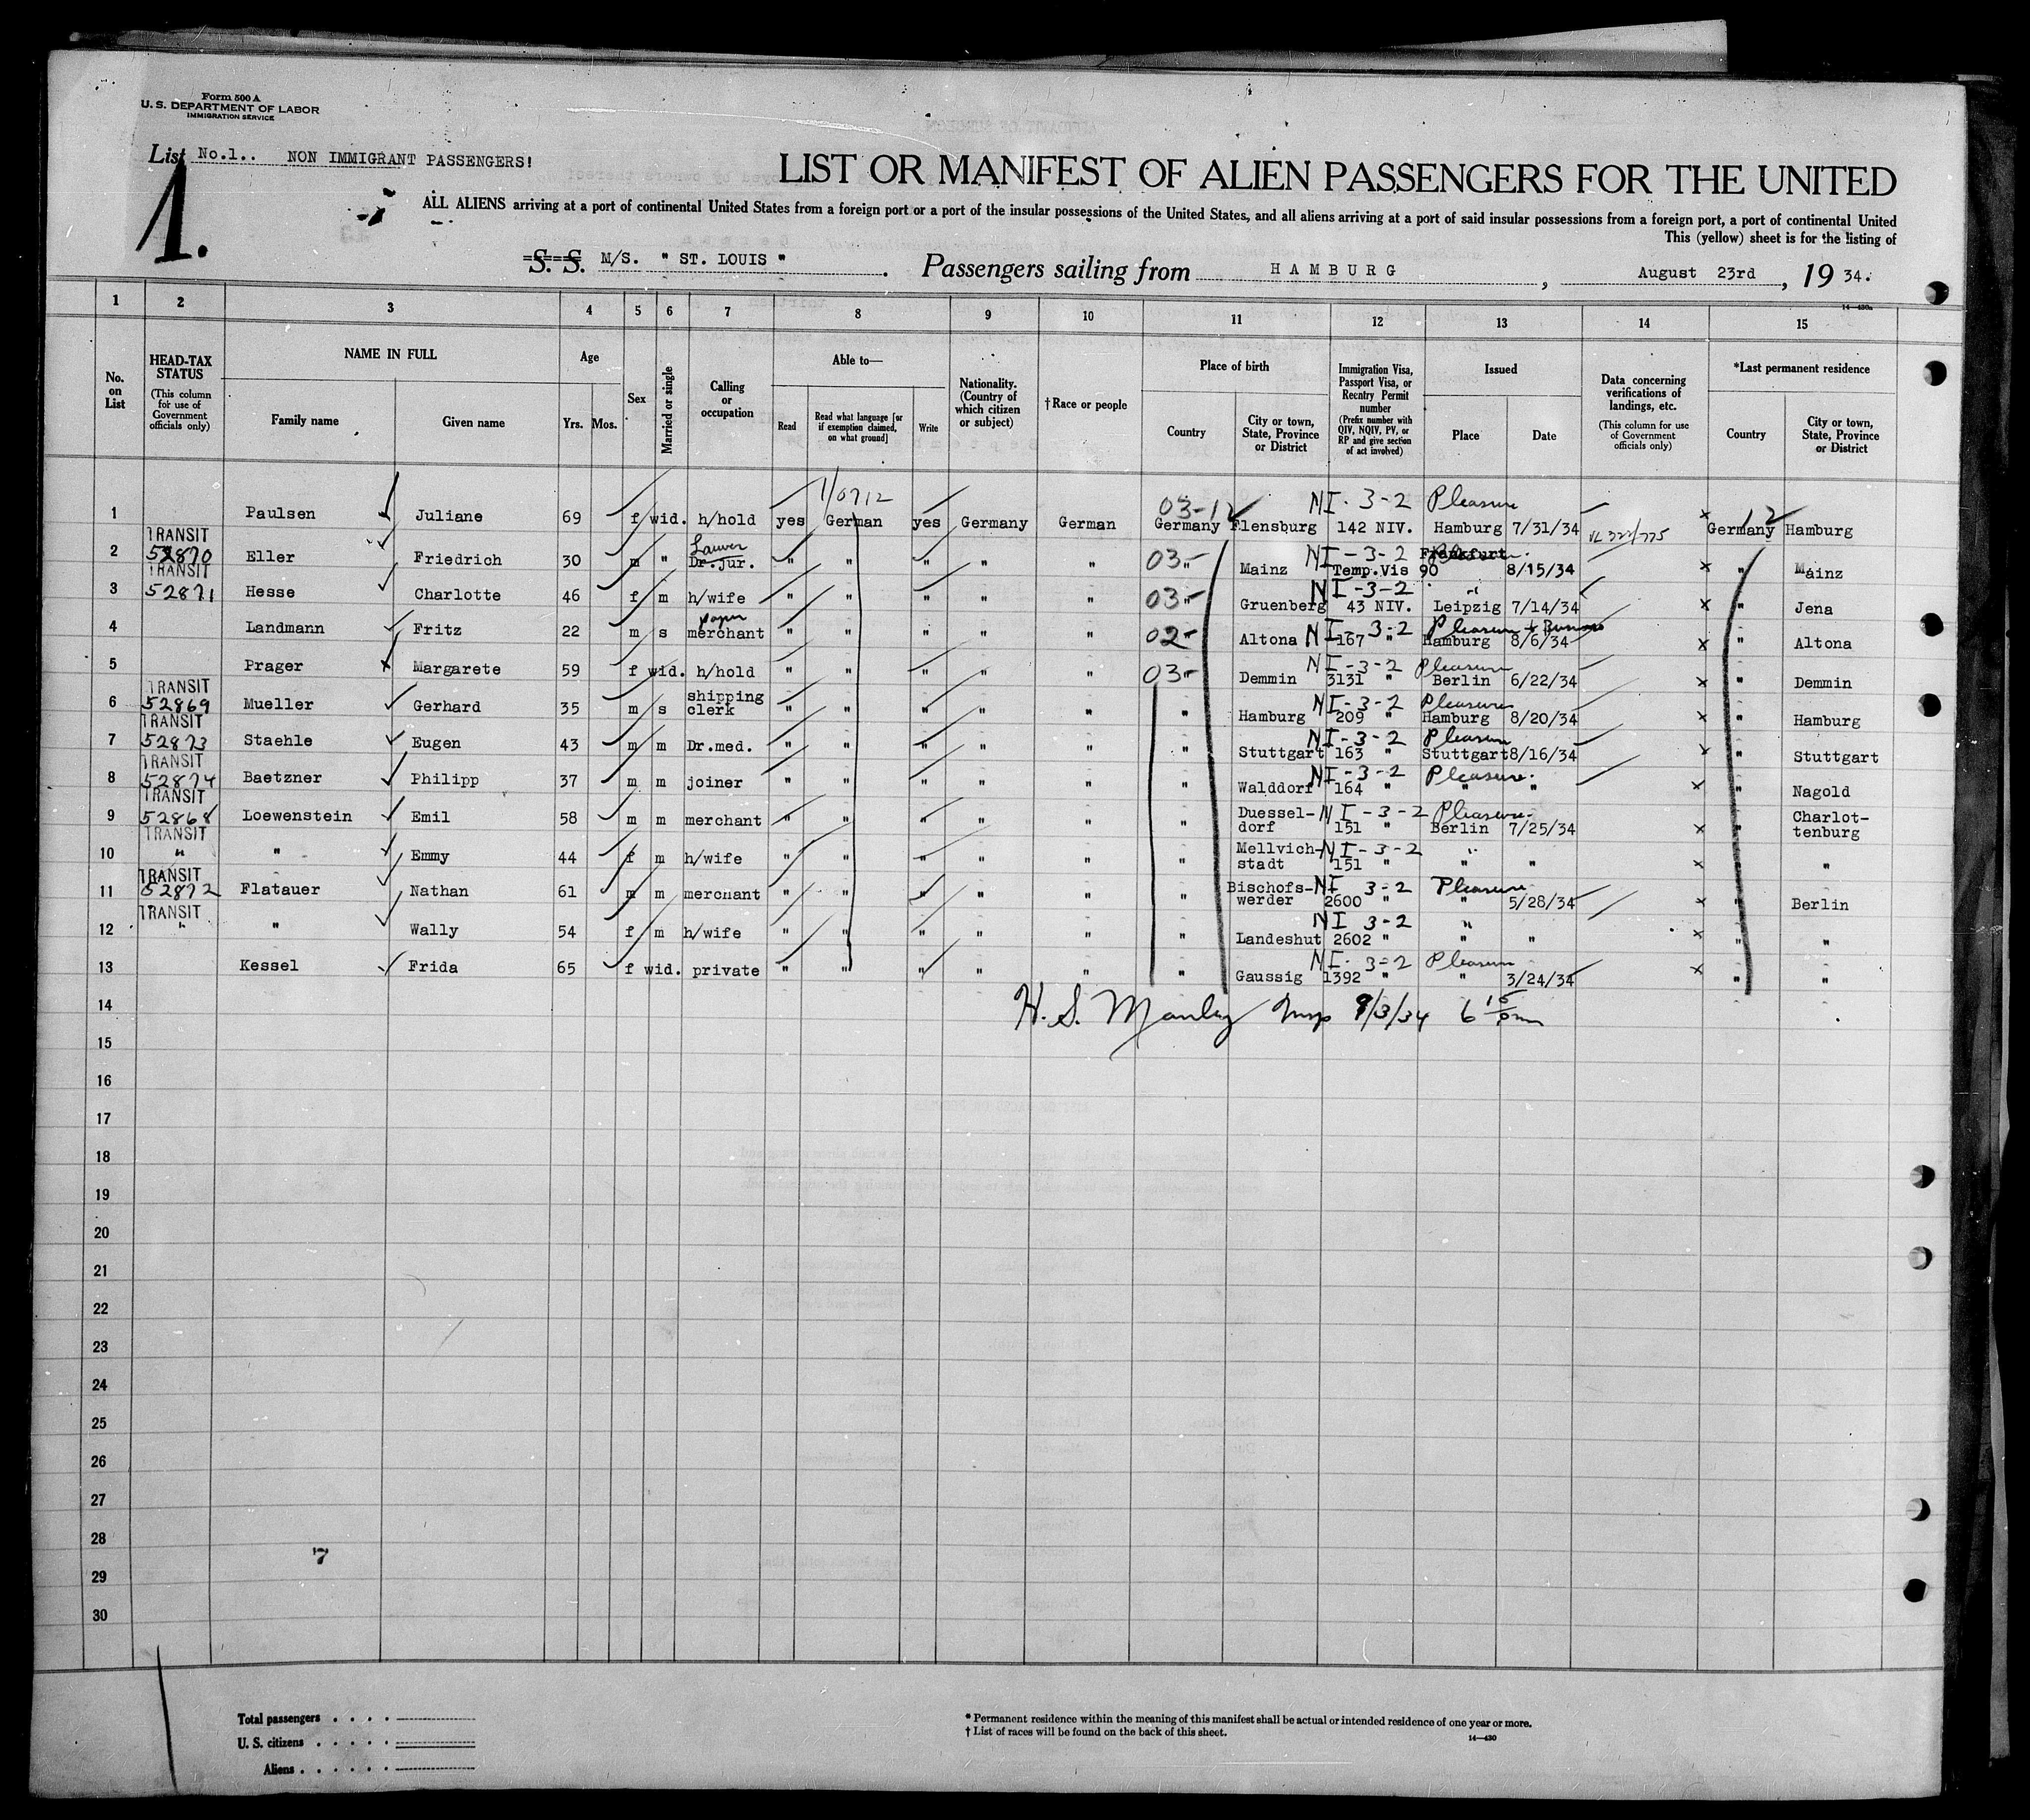 Form 500 A
U. S. DEPARTMENT OF LABOR
IMMIGRATION SERVICE
List No.1.. NON IMMIGRANT PASSENGERS!
1.
LIST OR MANIFEST OF ALIEN PASSENGERS FOR THE UNITED
ALL ALIENS arriving at a port of continental United States from a foreign port or a port of the insular possessions of the United States, and all aliens arriving at a port of said insular possessions from a foreign port, a port of continental United
This (yellow) sheet is for the listing of
S. S. M/S. " ST. LOUIS " . Passengers sailing from H A M B U R G , August 23rd , 19 34.
14—430a
1 2 3 4 5 6 7 8 9 10 11 12 13 14 15
No. on List
HEAD-TAX STATUS
(This column for use of Government officials only)
NAME IN FULL
Family name
Given name
Age
Yrs. Mos.
Sex
Married or single
Calling or occupation
Able to—
Read
Read what language [or if exemption claimed, on what ground]
Write
Nationality. (Country of which citizen or subject)
†Race or people
Place of birth
Country
City or town, State, Province or District
Immigration Visa, Passport Visa, or Reentry Permit number
(Prefix number with QIV, NQIV, PV, or RP and give section of act involved)
Issued
Place
Date
Data concerning verifications of landings, etc.
(This column for use of Government officials only)
*Last permanent residence
Country
City or town, State, Province or District
03-12 NI-3-2 Pleasure
1 Paulsen Juliane 69 f wid. h/hold yes German yes Germany German Germany Flensburg 142 NIV. Hamburg 7/31/34 Germany 12 Hamburg
TRANSIT Lawyer NI-3-2 Frankfurt
2 52870 Eller Friedrich 30 m " Dr.jur. " " " " " 03- " Mainz Temp.Vis 90 8/15/34 " Mainz
TRANSIT NI-3-2 "
3 52871 Hesse Charlotte 46 f m h/wife " " " " " 03- " Gruenberg 43 NIV. Leipzig 7/14/34 " Jena
paper NI-3-2 Pleasure + Business
4 Landmann Fritz 22 m s merchant " " " " " 02- " Altona 167 " Hamburg 8/6/34 " Altona
NI-3-2 Pleasure
5 Prager Margarete 59 f wid. h/hold " " " " " 03- " Demmin 3131 " Berlin 6/22/34 " Demmin
TRANSIT shipping NI-3-2 Pleasure
6 52869 Mueller Gerhard 35 m s clerk " " " " " " Hamburg 209 " Hamburg 8/20/34 " Hamburg
TRANSIT NI-3-2 Pleasure
7 52873 Staehle Eugen 43 m m Dr.med. " " " " " " Stuttgart 163 " Stuttgart 8/16/34 " Stuttgart
TRANSIT NI-3-2 Pleasure
8 52874 Baetzner Philipp 37 m m joiner " " " " " " Walddorf 164 " " " " Nagold
TRANSIT Duessel- NI-3-2 Pleasure Charlot-
9 52868 Loewenstein Emil 58 m m merchant " " " " " " dorf 151 " Berlin 7/25/34 " tenburg
TRANSIT Mellvich- NI-3-2 "
10 " " Emmy 44 f m h/wife " " " " " " stadt 151 " " " " "
TRANSIT Bischofs- NI 3-2 Pleasure
11 52872 Flatauer Nathan 61 m m merchant " " " " " " werder 2600 " " 5/28/34 " Berlin
TRANSIT NI 3-2 "
12 " " Wally 54 f m h/wife " " " " " " Landeshut 2602 " " " " "
NI-3-2 Pleasure
13 Kessel Frida 65 f wid. private " " " " " " Gaussig 1392 " " 3/24/34 " "
14 H. S. Manley Insp 9/3/34 6 15 pm
15
16
17
18
19
20
21
22
23
24
25
26
27
28
7
29
30
Total passengers
U. S. citizens
Aliens
* Permanent residence within the meaning of this manifest shall be actual or intended residence of one year or more.
† List of races will be found on the back of this sheet.
14—430